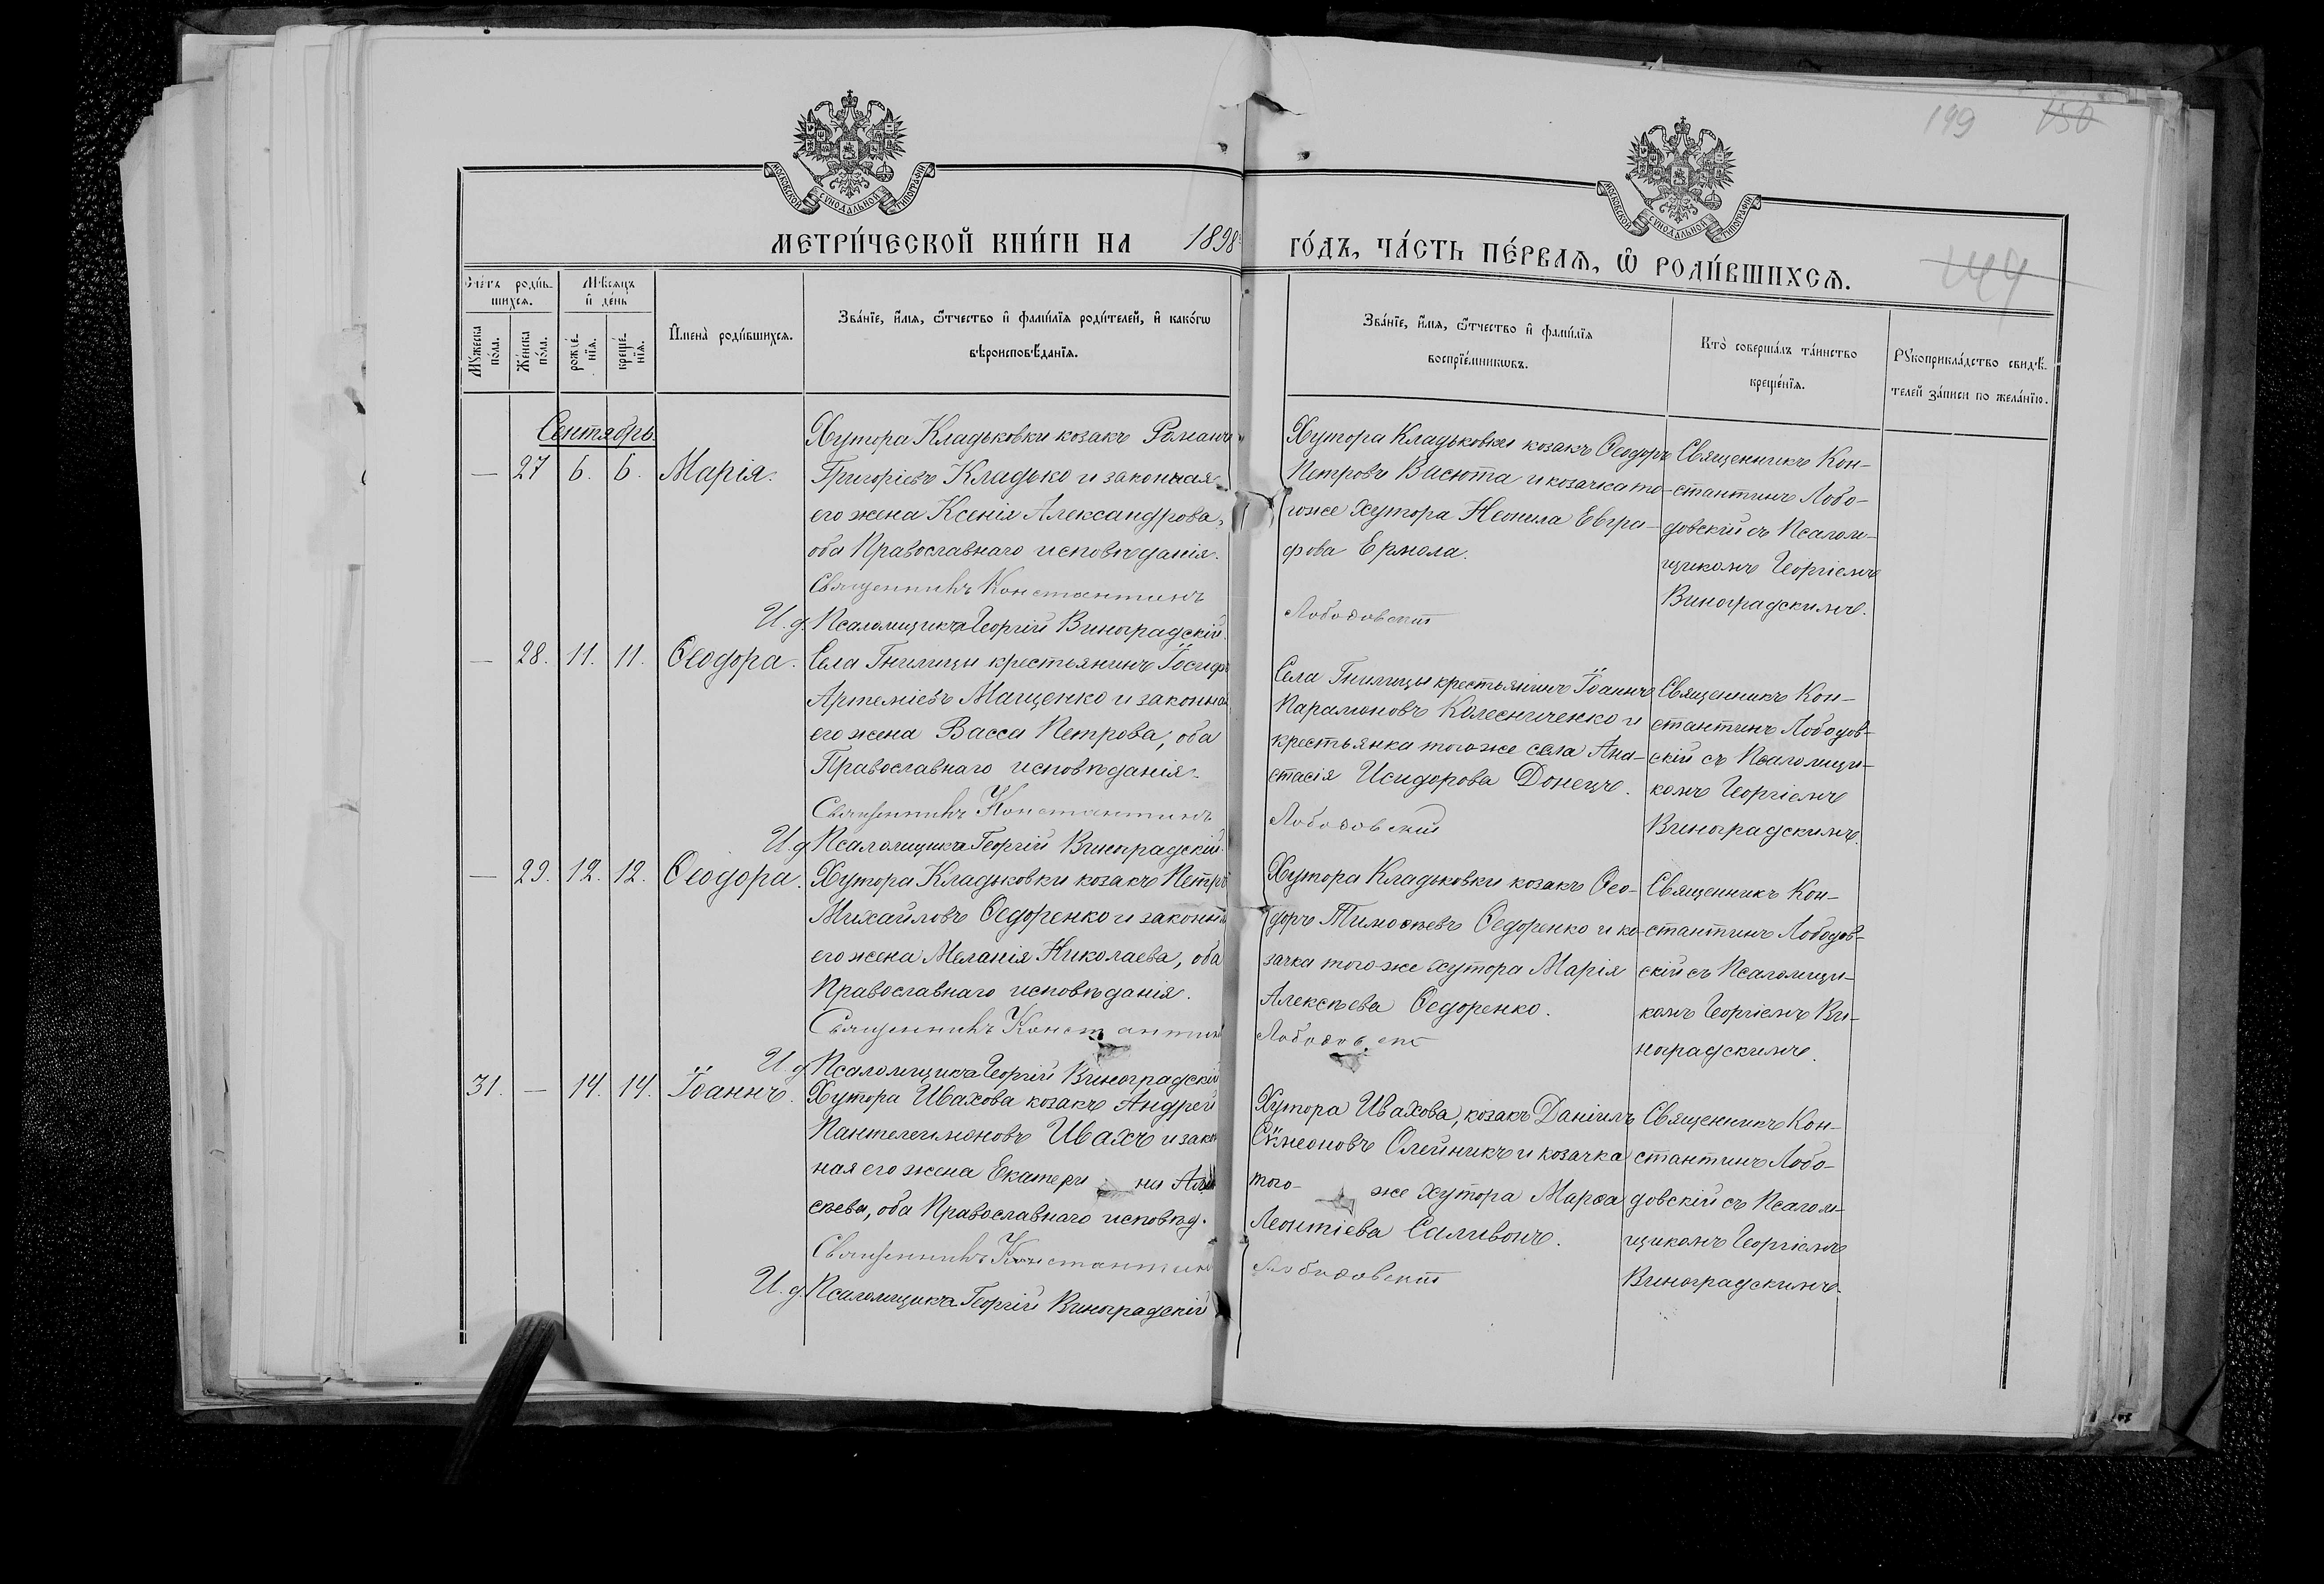 199 150
МОСКОВСКОЙ СѴНОДАЛЬНОЙ ТИПОГРАФІИ
МОСКОВСКОЙ СѴНОДАЛЬНОЙ ТИПОГРАФІИ
МЕТРИ́ЧЕСКОЙ КНИ́ГИ НА 1898
ГО́ДЪ, ЧА́СТЬ ПЕ́РВАѦ, Ѽ РОДИ́ВШИХСѦ.
149
Сче́тъ роди́в-
шихсѧ.
Мѣ́сѧцъ
и҆ де́нь
Мꙋ́жеска
по́ла.
Же́нска
по́ла.
рожде́-
нїѧ.
креще́-
нїѧ.
И҆мена̀ роди́вшихсѧ.
Зва́нїе, и҆́мѧ, ѻ҆́тчество и҆ фами́лїѧ роди́телей, и҆ како́гѡ
вѣроисповѣ́данїѧ.
Зва́нїе, и҆́мѧ, ѻ҆́тчество и҆ фами́лїѧ
воспрїе́мникѡвъ.
Кто̀ соверша́лъ та́инство
креще́нїѧ.
Рꙋкоприкла́дство свидѣ́-
телей за́писи по жела́нїю.
Сентябрь
— 27 6. 6. Марія.
Хутора Кладьковки козакъ Романъ
Григоріевъ Кладько и законная
его жена Ксенія Александрова,
оба Православнаго исповѣданія.
Священникъ Константинъ
И. д. Псаломщика Георгій Виноградскій.
Хутора Кладьковки козакъ Ѳеодоръ
Петровъ Висюта и козачка то-
гоже хутора Неонила Евгра-
фова Ермола.
Лободовскій
Священникъ Кон-
стантинъ Лобо-
довскій съ Псалом-
щикомъ Георгіемъ
Виноградскимъ.
— 28. 11. 11. Ѳеодора.
Села Гнилицы крестьянинъ Іосифъ
Артеміевъ Мащенко и законная
его жена Васса Петрова, оба
Православнаго исповѣданія.
Священникъ Константинъ
И. д. Псаломщика Георгій Виноградскій.
Села Гнилицы крестьянинъ Іоаннъ
Парамоновъ Колесниченко и
крестьянка того-же села Ана-
стасія Исидорова Донецъ.
Лободовскій
Священникъ Кон-
стантинъ Лободов-
скій съ Псаломщи-
комъ Георгіемъ
Виноградскимъ.
— 29. 12. 12. Ѳеодора.
Хутора Кладьковки козакъ Петръ
Михайловъ Ѳедоренко и законная
его жена Меланія Николаева, оба
Православнаго исповѣданія.
Священникъ Константинъ
И. д. Псаломщика Георгій Виноградскій
Хутора Кладьковки козакъ Ѳео-
доръ Тимоѳеевъ Ѳедоренко и ко-
зачка того-же хутора Марія
Алексѣева Ѳедоренко.
Лободовскі
Священникъ Кон-
стантинъ Лободов-
скій съ Псаломщи-
комъ Георгіемъ Ви-
ноградскимъ.
31. — 14. 14. Іоаннъ.
Хутора Ивахова козакъ Андрей
Пантелеимоновъ Ивахъ и закон
ная его жена Екатерина
сѣева, оба Православнаго исповѣд.
Священникъ Константинъ
И. д. Псаломщика Георгій Виноградскій
Хутора Ивахова, козакъ Даніилъ
Сѵмеоновъ Олейникъ и козачка
того-же хутора Марѳа
Леонтіева Саливонъ.
Лободовскій
Священникъ Кон-
стантинъ Лобо-
довскій съ Псалом-
щикомъ Георгіемъ
Виноградскимъ.